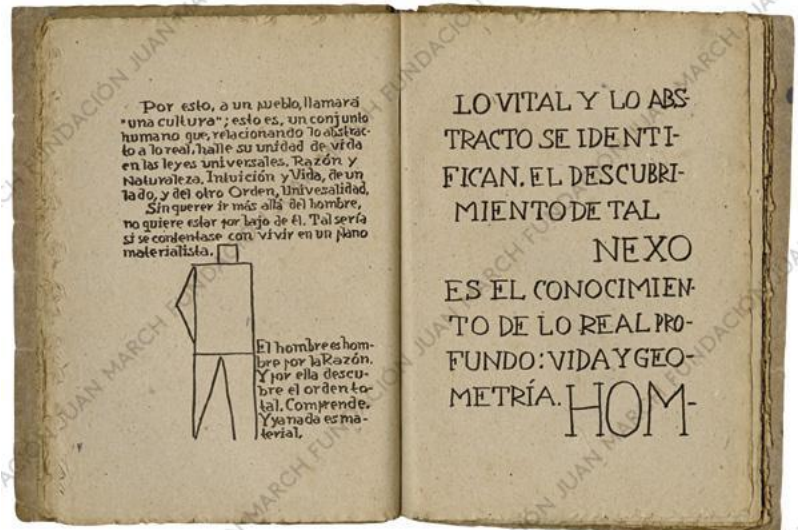 Por esto, a un pueblo, llamará
"una cultura"; esto es, un conjunto
humano que, relacionando lo abstrac-
to a lo real, halle su unidad de vida
en las leyes universales. Razón y
Naturaleza, Intuición y Vida, de un
lado, y del otro Orden, Univesalidad.
Sin querer ir más allá del hombre,
no quiere estar por bajo de él. Tal sería
si se contentase con vivir en un plano
materialista.
El hombre es hom-
bre por la Razón.
Y por ella descu-
bre el orden to-
tal. Comprende.
Y ya nada es ma-
terial.
LO VITAL Y LO ABS-
TRACTO SE IDENTI-
FICAN. EL DESCUBRI-
MIENTO DE TAL
NEXO
ES EL CONOCIMIEN-
TO DE LO REAL PRO-
FUNDO: VIDA Y GEO-
METRÍA. HOM-
FUNDACIÓN JUAN MARCH